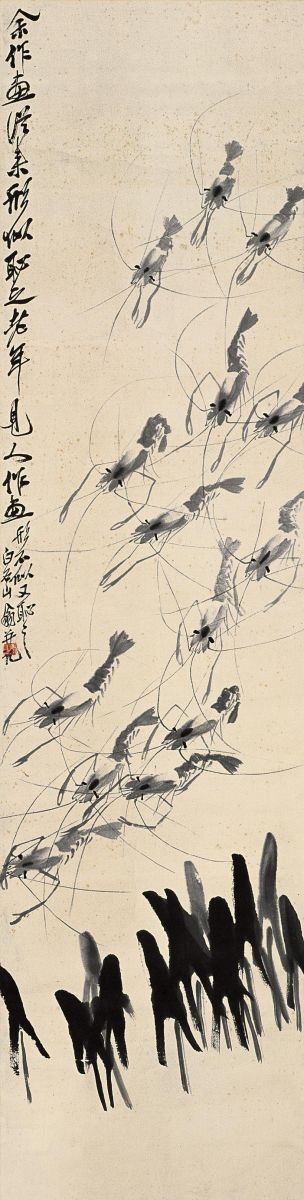 余作畫從來形似恥之老年見人作畫形不似又恥之
白石山翁并記